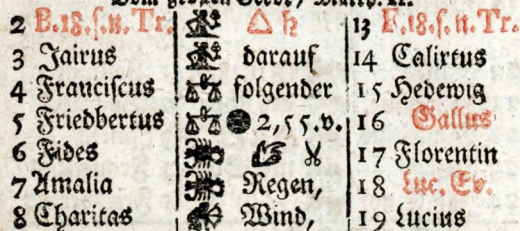 2 B. 18. s. n. Tr. △ ♄ 13 F. 18. s. n. Tr.
3 Jairus darauf 14 Calixtus
4 Franciſcus folgender 15 Hedewig
5 Friedbertus 2, 55. v. 16 Gallus
6 Fides 17 Florentin
7 Amalia Regen, 18 Luc. Ev.
8 Charitas Wind, 19 Lucius